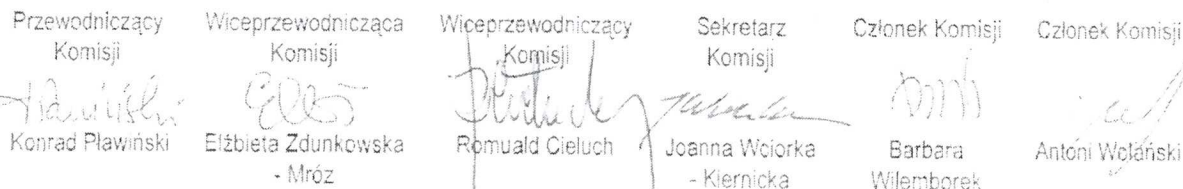 Przewodniczący
Komisji
Konrad Pławiński
Wiceprzewodnicząca
Komisji
Elżbieta Zdunkowska
- Mróz
Wiceprzewodniczący
Komisji
Romuald Cieluch
Sekretarz
Komisji
Joanna Wciorka
- Kiernicka
Członek Komisji
Barbara
Wilemborek
Członek Komisji
Antoni Wolański